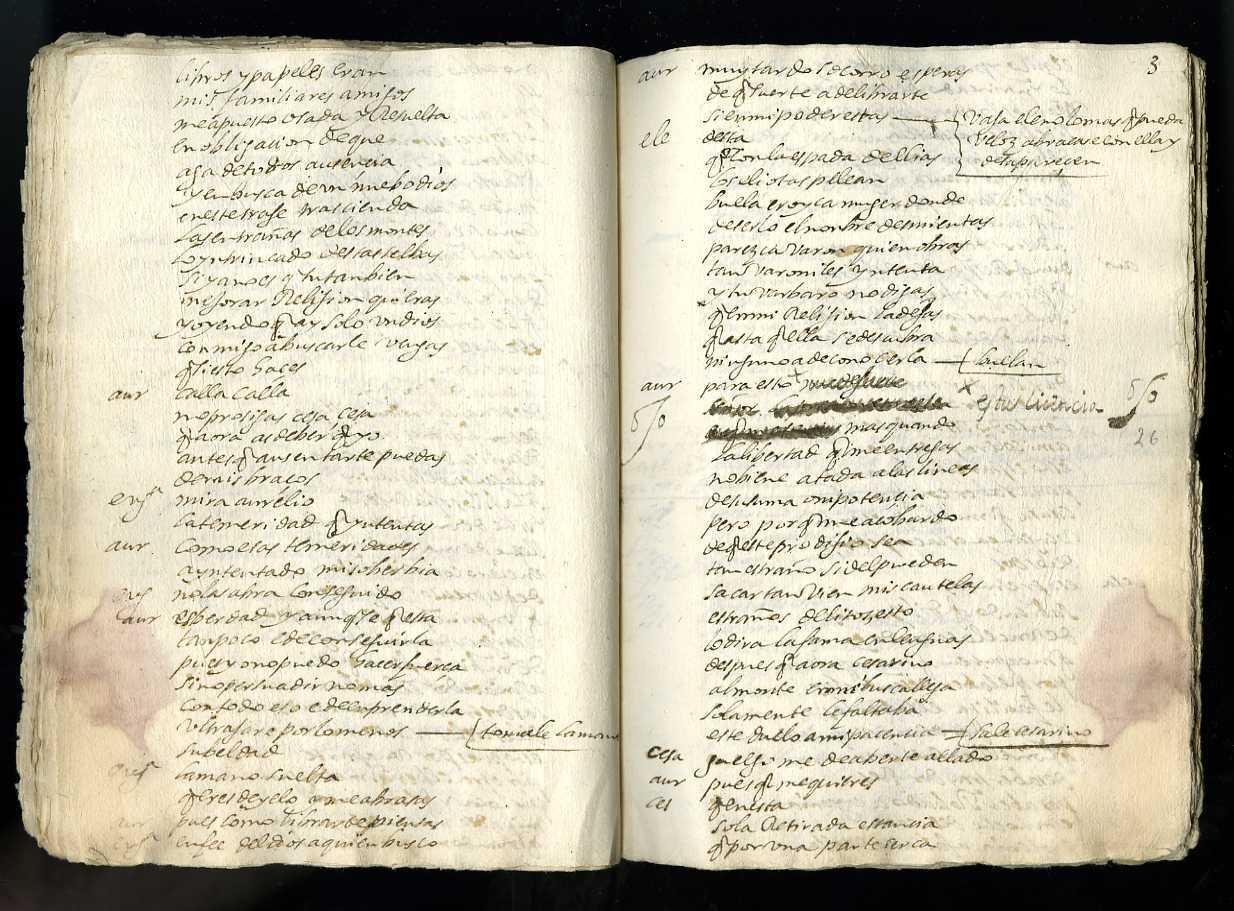 libros y papeles eran
mis familiares amigos
me a puesto osada y Resuelta
en obligacion de que
aga de todos ausencia
y en busca de mi nuebo dios
en este traje trascienda
las entrañas de los montes
lo yntrincado destas selbas
si ya no es q tu tambien
mejorar Relijion quieras
y oyendo q ay solo un dios
conmigo a buscarle vengas
q si esto haces
aur calla calla
no prosigas cesa cesa
q aora as de ber q yo
antes q ausentarte puedas
de mis braços
eugª mira aurelio
la temeridad q yntentas
aur como esas temeridades
a yntentado mi soberbia
eug no las abra conseguido
aur es berdad y aunq se q esta
tanpoco e de conseguirla
pues yo no puedo hacer fuerça
sino persuadir no mas
con todo eso e de enprenderla
ultrajare por lo menos — tomale la mano
su beldad
eugª la mano suelta
q eres de yelo y me abrasas
aur pues como librarte piensas
eugª en fee del dios a quien busco
3
aur muy tardo socorro esperas
de q suerte a de librarte
si en mi poder estas — Baja eleno lo mas q pueda
veloz abraçase con ella y
desaparecen
ele desta
q con la espada de elias
los eliotas pelean
buela eroyca muger donde
de serlo el nonbre desmientas
parezca varon quien obras
tan varoniles yntenta
y tu barbaro no digas
q en mi Relijion la dejas
q asta q ella se descubra
ninguno a de conoçerla — buelan
aur para esto
es tu licencia
26
mas quando
la libertad q me entregas
no biene atada a las lineas
de su suma onipotencia
pero por q me acobardo
de q este prodijio sea
tan estraño si del pueden
sacar tan bien mis cautelas
estraños delitos esto
lo dira la fama en lenguas
despues q aora cesarino
al monte en mi busca llega
solamente le faltaba
este duelo a mi paciencia — sale cesarino
cesa guelgo me de aberte allado
aur pues q me quieres
ces q en esta
sola Retirada estancia
q por una parte cerca